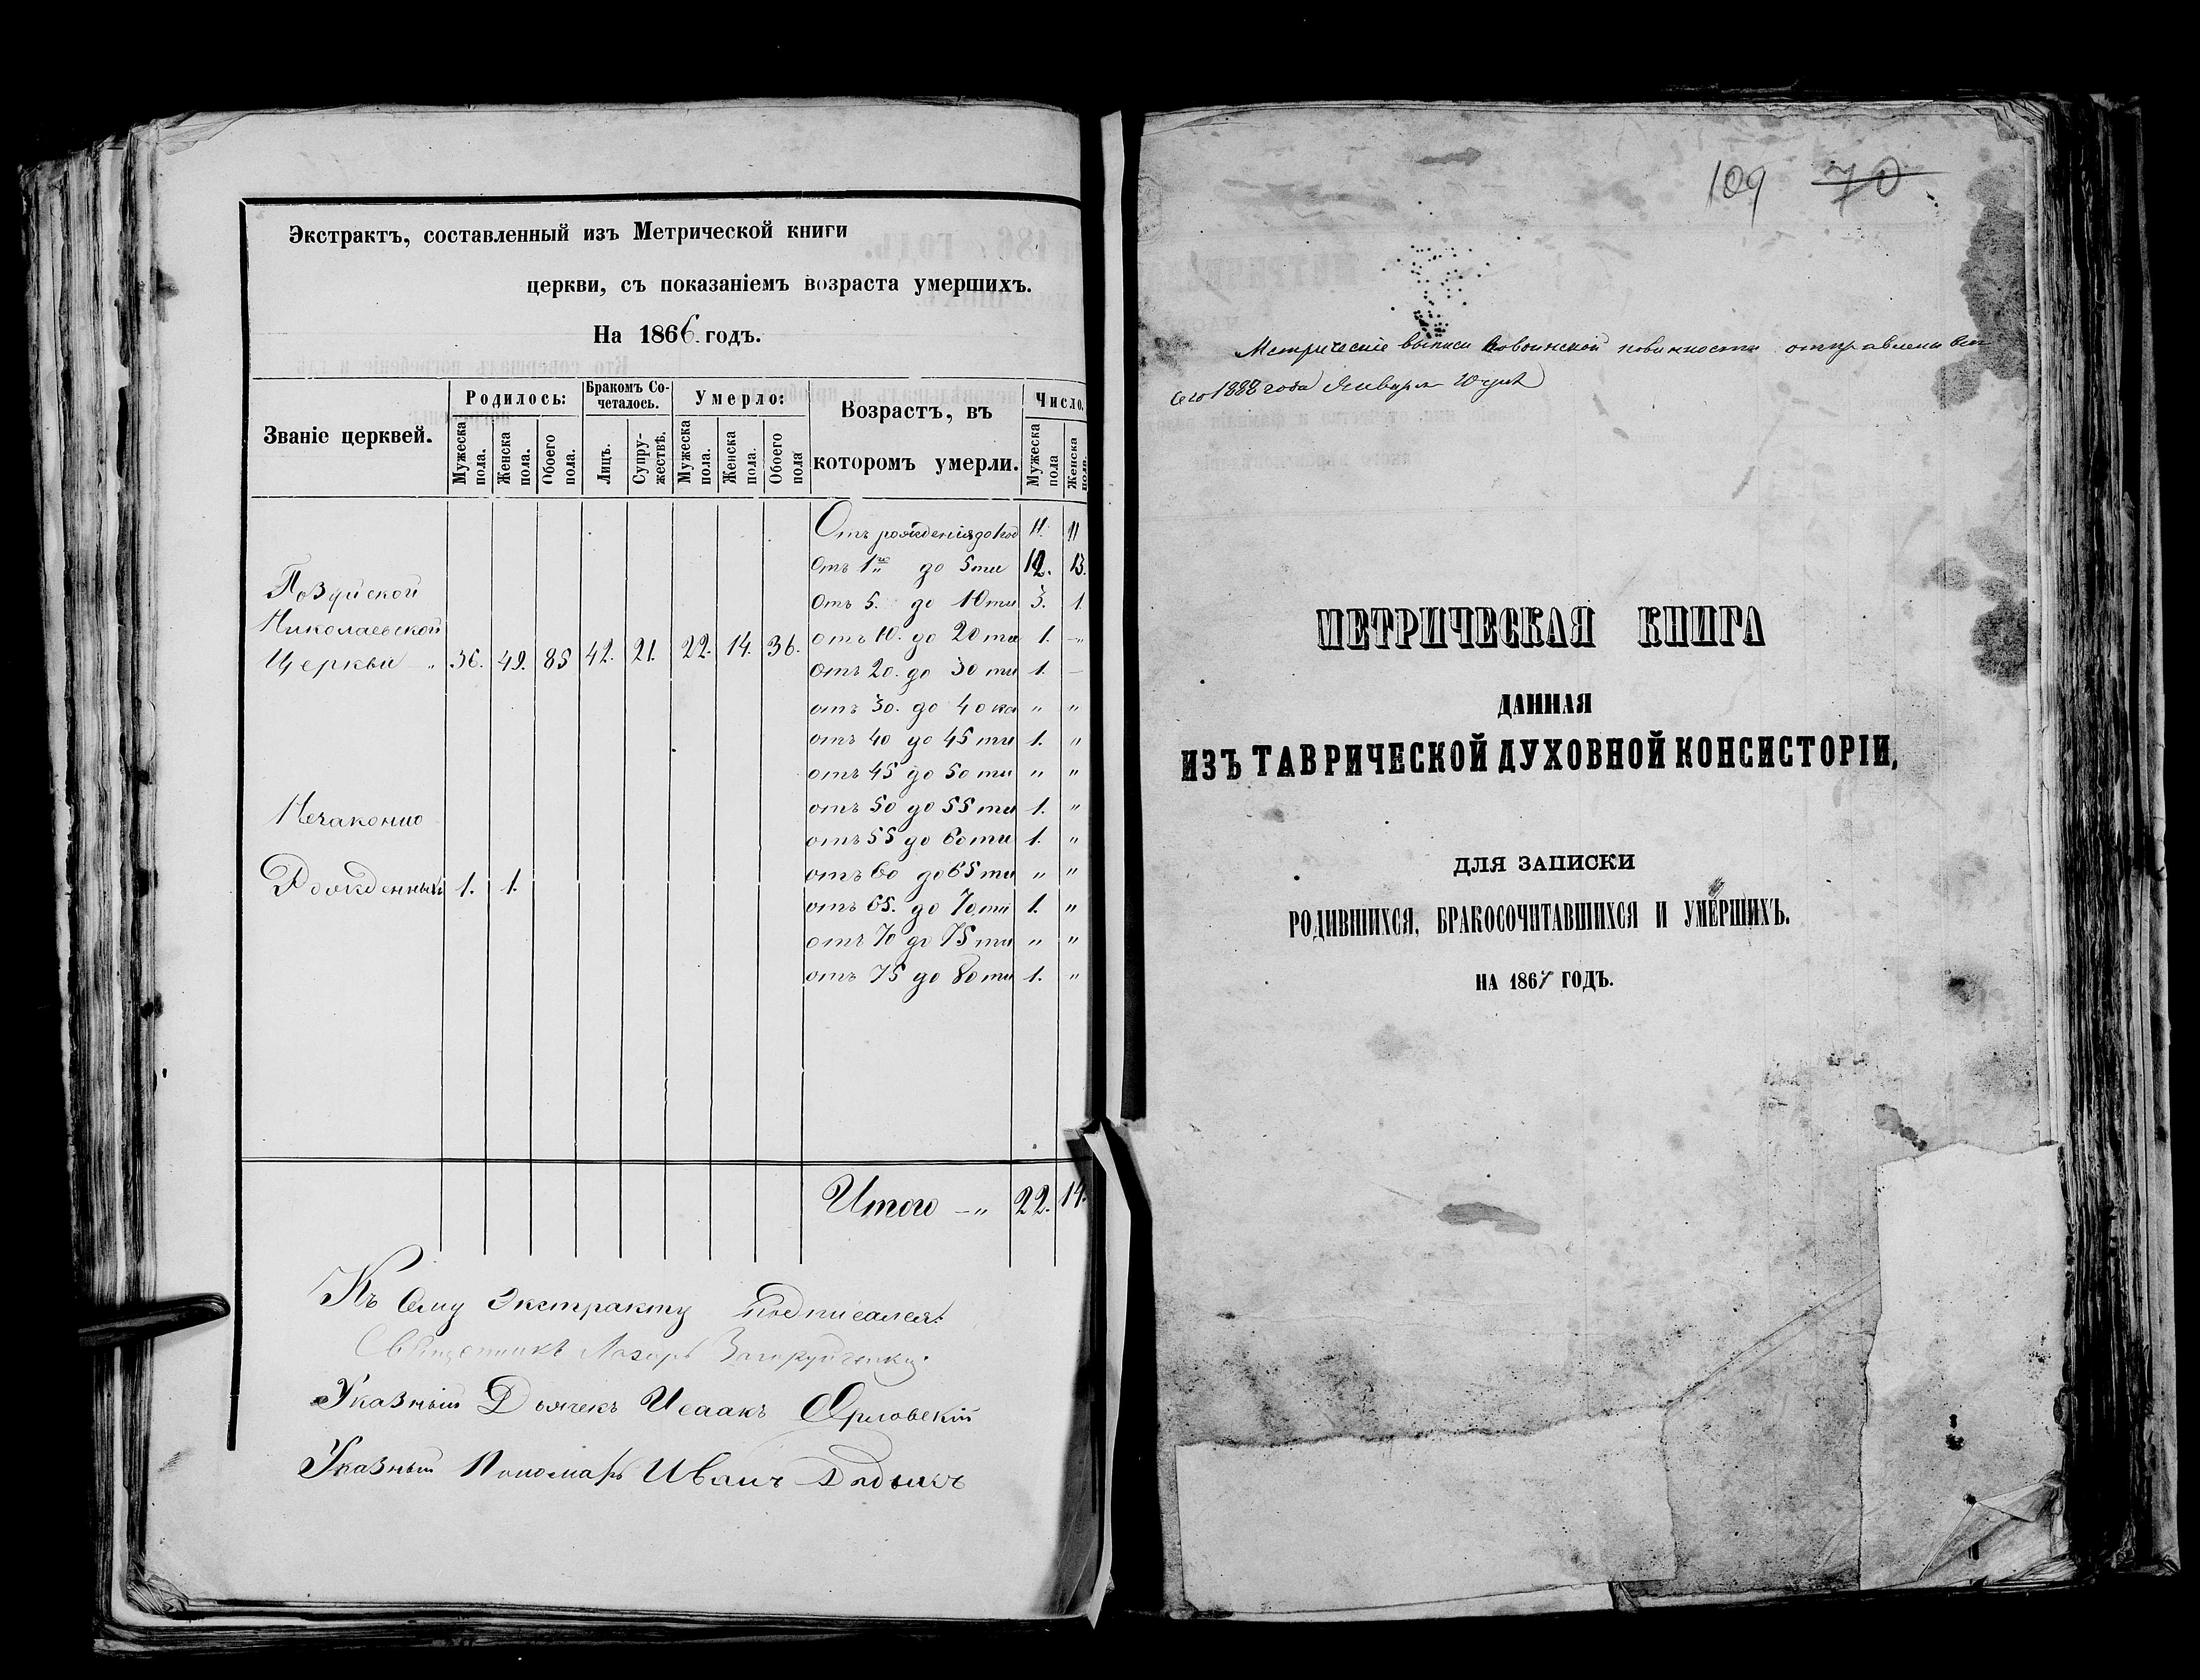 Экстрактъ, составленный изъ Метрической книги
церкви, съ показаніемъ возраста умершихъ.
На 1866. годъ.
Званіе церквей.
Родилось:
Бракомъ Со-
четалось.
Умерло:
Возрастъ, въ
которомъ умерли.
Число.
Мужеска пола.
Женска пола.
Обоего пола.
Лицъ.
Супру-
жествъ.
Мужеска пола.
Женска пола.
Обоего пола
Мужеска пола
Женска пола.
Отъ рожденія до 11. 11
отъ 1го до 5ти 12. 13.
отъ 5. до 10ти 3. 1.
отъ 10. до 20ти 1. -"
отъ 20. до 30ти 1. -
отъ 30. до 40ка " "
отъ 40 до 45ти 1. "
отъ 45 до 50ти " "
отъ 50 до 55ти 1. "
отъ 55 до 60ти 1. "
отъ 60 до 65ти " "
отъ 65. до 70ти 1. "
отъ 70 до 75ти " "
отъ 75 до 80ти 1. "
Николаевской
Церкви - " 36. 49. 85 42. 21. 22. 14. 36.
Незаконно
Рожденныхъ 1. 1.
Итого -" 22. 14.
Къ сему Экстракту подписался:
Священникъ Лазарь
Указный Дьячекъ Исаакъ Орловскій
Указный Пономарь Иванъ
109 70
Метрическіе выписи о воинской повинности отправлены
сего 1888 года Января 10 дня
МЕТРИЧЕСКАЯ КНИГА
ДАННАЯ
ИЗЪ ТАВРИЧЕСКОЙ ДУХОВНОЙ КОНСИСТОРІИ,
ДЛЯ ЗАПИСКИ
РОДИВШИХСЯ, БРАКОСОЧИТАВШИХСЯ И УМЕРШИХЪ.
НА 1867 ГОДЪ.